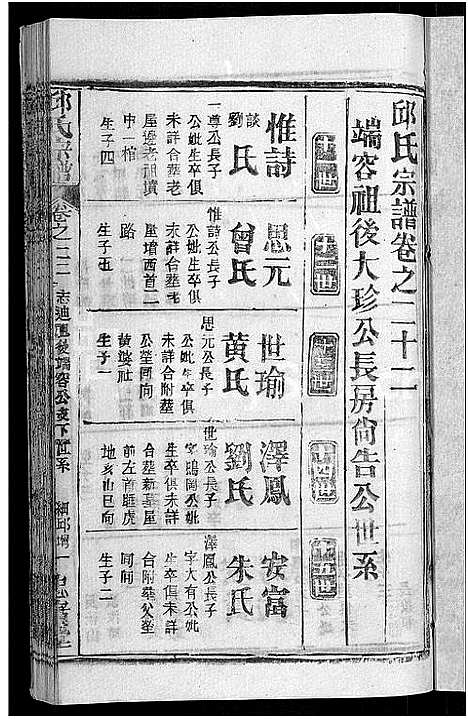 邱氏宗譜卷之二十二
端容祖後大珍公長房尙告公世系
十一世
惟詩
談劉氏
一尊公長子
公妣生卒俱
未詳合葬老
屋邊老祖墳
中一棺
生子四
十二世
思元
曾氏
惟詩公長子
公妣生卒俱
未詳合葬老
屋墳西首二
路
生子五
十三世
世瑜
黄氏
思元公長子
公妣生卒俱
未詳合附葬
公塋同向
黄婆社
生子一
十四世
澤鳳
劉氏
世瑜公長子
字鳴岡公妣
生卒俱未詳
合葬新墓屋
前左首匪虎
地亥山巳向
十五世
安富
朱氏
澤鳳公長子
字大有公妣
生卒俱未詳
合附葬父塋
同向
生子二
邱氏宗譜
卷之二二
志迪祖後端容公支下世系